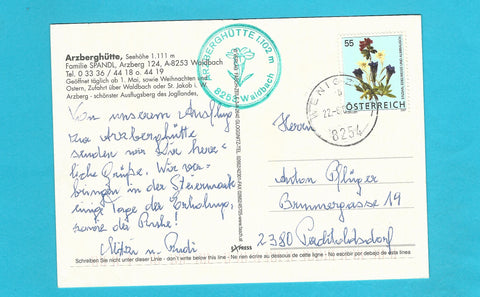 Arzberghütte, Seehöhe 1.111 m
Familie SPANDL, Arzberg 124, A-8253 Waldbach
Tel. 0 33 36 / 44 18 o. 44 19
Geöffnet täglich ab 1. Mai, sowie Weihnachten und
Ostern, Zufahrt über Waldbach oder St. Jakob i.
Arzberg - schönster Ausflugsberg des Joglandes.
ARZBERGHÜTTE 1.102 m
8253 Waldbach
55
ÖSTERREICH
WENIG
8254
Von unserem Ausflug
zur Arzberghütte
senden wir Dir herz-
liche Grüße. Wir ver-
bringen in der Steiermark
einige Tage der Erholung,
sowie der Ruhe!
Mitzi u. Rudi
Herrn
Anton Pflüger
Brunnergasse 19
2380 Perchtoldsdorf
EXPRESS
Schreiben Sie nicht unter diesen Linie - don't write below this line - Ne Rien écrire au dessous de cette ligne - No escribir por debajo de esta linea